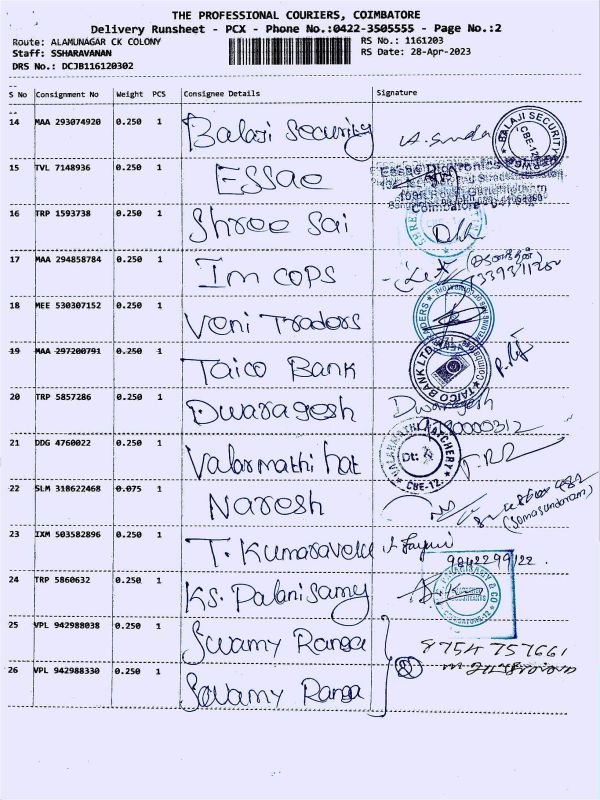 THE PROFESSIONAL COURIERS, COIMBATORE
Delivery Runsheet - PCX - Phone No.:0422-3505555 - Page No.:2
Route: ALAMUNAGAR CK COLONY RS No.: 1161203
Staff: SSHARAVANAN RS Date: 28-Apr-2023
DRS No.: DCJB116120302
S No Consignment No Weight PCS Consignee Details Signature
14 MAA 293074920 0.250 1 Balaji Security
BALAJI SECURITY
CBE-12
15 TVL 7148936 0.250 1 ESSae
Coimbatore
16 TRP 1593738 0.250 1 Shree Sai
17 MAA 294858784 0.250 1 Im cops
18 MEE 530307152 0.250 1 Veni Traders
19 MAA 297200791 0.250 1 Taico Bank
TAICO BANK LTD
20 TRP 5857286 0.250 1 Dwaragesh
Dwaragesh
21 DDG 4760022 0.250 1 Valarmathi hat
VALARMATHI HATCHERY
Dt:
CBE-12.
22 SLM 318622468 0.075 1 Naresh
(Somasundaram)
23 IXM 503582896 0.250 1 T. Kumaravelu
9842299122.
24 TRP 5860632 0.250 1 KS. Palanisamy
25 VPL 942988038 0.250 1 Swamy Ranga
8754757661
26 VPL 942988330 0.250 1 Swamy Ranga